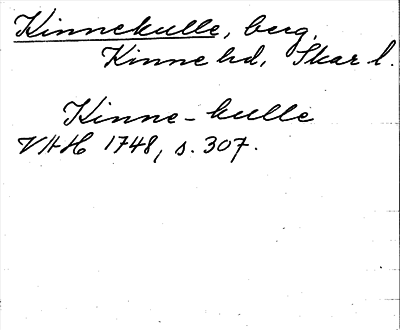 Kinnekulle, berg,
Kinne hd, Skar l.
Kinne-kulle
VAH 1748, s. 307.